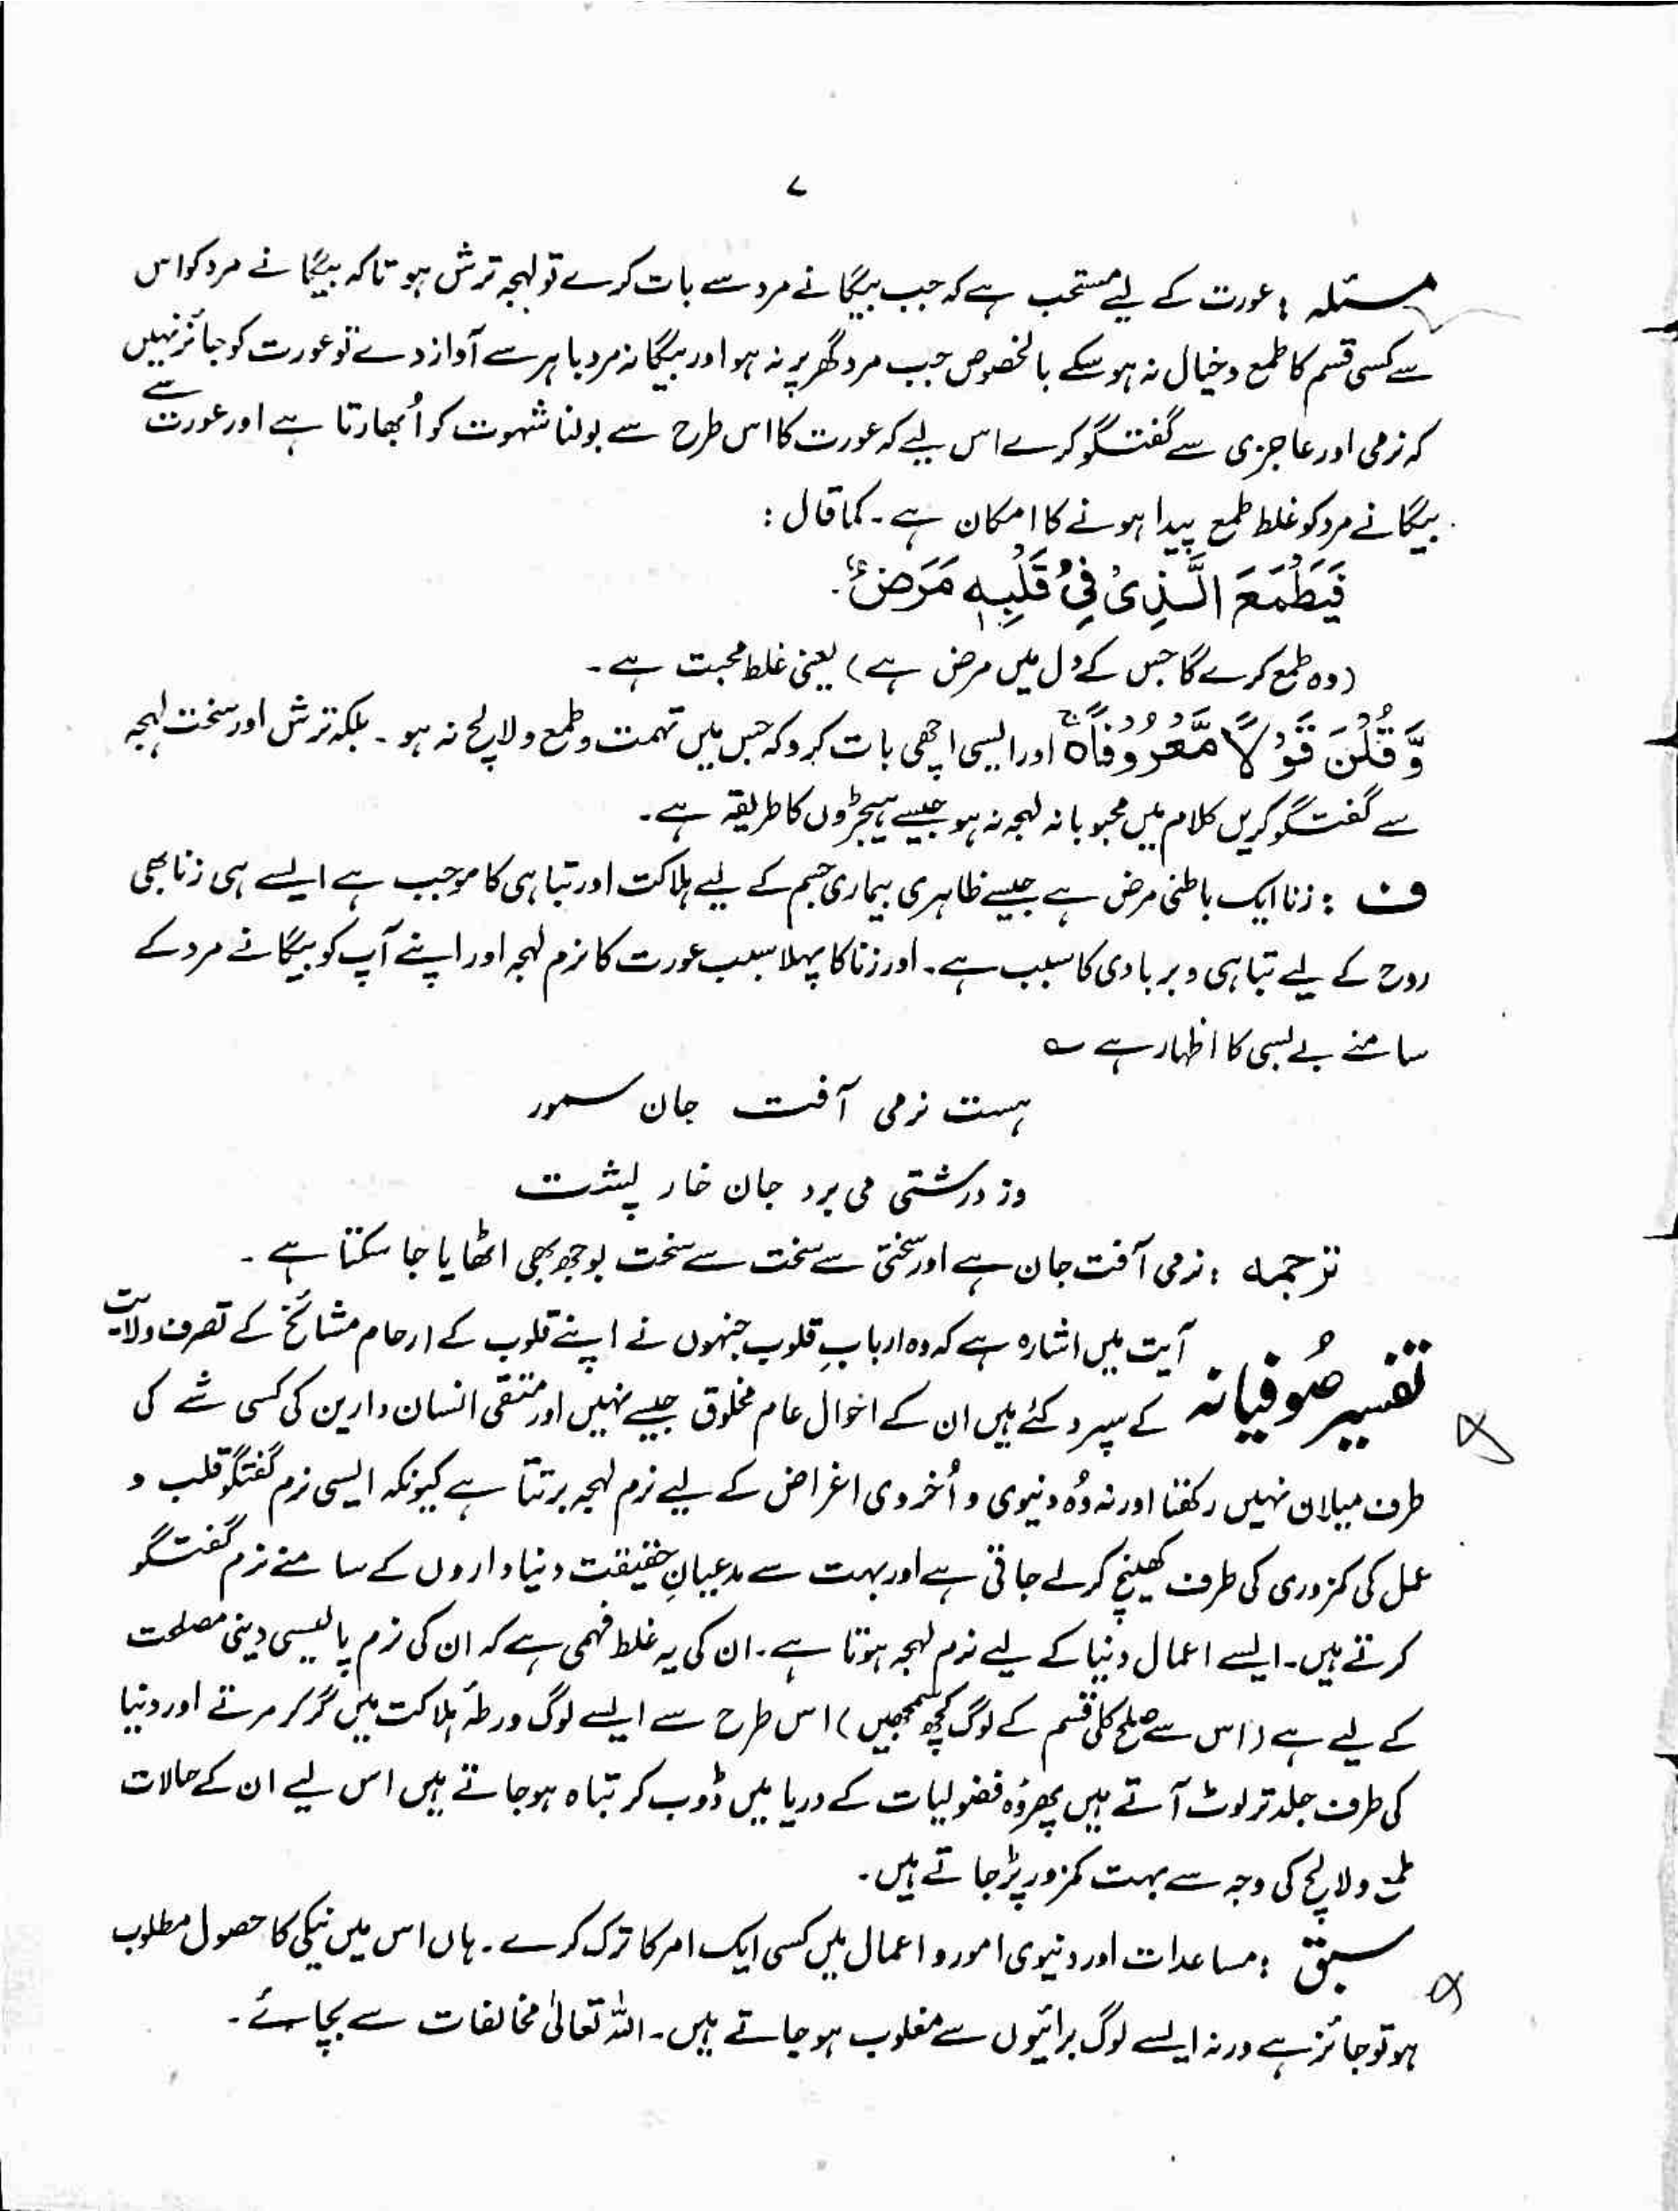 ۷
مسئلہ : عورت کے لیے مستحب ہے کہ جب بیگانے مرد سے بات کرے تو لہجہ ترش ہو تاکہ بیگانے مرد کو اس
سے کسی قسم کا طمع و خیال نہ ہو سکے بالخصوص جب مرد گھر پر نہ ہو اور بیگانہ مرد باہر سے آواز دے تو عورت کو جائز نہیں
کہ نرمی اور عاجزی سے گفتگو کرے اس لیے کہ عورت کا اس طرح سے بولنا شہوت کو اُبھارتا ہے اور عورت سے
بیگانے مرد کو غلط طمع پیدا ہونے کا امکان ہے۔ کما قال :
فَیَطْمَعَ الَّذِیْ فِیْ قَلْبِہٖ مَرَضٌ۔
(وہ طمع کرے گا جس کے دل میں مرض ہے) یعنی غلط محبت ہے۔
وَّ قُلْنَ قَوْلًا مَّعْرُوْفًا۝ اور ایسی اچھی بات کرو کہ جس میں تہمت و طمع و لالچ نہ ہو۔ بلکہ ترش اور سخت لہجہ
سے گفتگو کریں کلام میں محبوبانہ لہجہ نہ ہو جیسے ہیجڑوں کا طریقہ ہے۔
ف : زنا ایک باطنی مرض ہے جیسے ظاہری بیماری جسم کے لیے ہلاکت اور تباہی کا موجب ہے ایسے ہی زنا بھی
روح کے لیے تباہی و بربادی کا سبب ہے۔ اور زنا کا پہلا سبب عورت کا نرم لہجہ اور اپنے آپ کو بیگانے مرد کے
سامنے بے بسی کا اظہار ہے ؎
ہست نرمی آفت جان سمور
وز درشتی می برد جان خار پشت
ترجمہ : نرمی آفت جان ہے اور سختی سے سخت سے سخت بوجھ بھی اٹھایا جا سکتا ہے۔
تفسیر صُوفیانہ آیت میں اشارہ ہے کہ وہ اربابِ قلوب جنہوں نے اپنے قلوب کے ارحام مشائخ کے تصرف ولایت
کے سپرد کئے ہیں ان کے احوال عام مخلوق جیسے نہیں اور متقی انسان دارین کی کسی شے کی
طرف میلان نہیں رکھتا اور نہ وُہ دنیوی و اُخروی اغراض کے لیے نرم لہجہ برتتا ہے کیونکہ ایسی نرم گفتگو قلب و
عمل کی کمزوری کی طرف کھینچ کر لے جاتی ہے اور بہت سے مدعیانِ حقیقت دنیا داروں کے سامنے نرم گفتگو
کرتے ہیں۔ ایسے اعمال دنیا کے لیے نرم لہجہ ہوتا ہے۔ ان کی یہ غلط فہمی ہے کہ ان کی نرم پالیسی دینی مصلحت
کے لیے ہے (اس سے صلح کلی قسم کے لوگ کچھ سمجھیں) اس طرح سے ایسے لوگ ورطۂ ہلاکت میں گر کر مرتے اور دنیا
کی طرف جلد تر لوٹ آتے ہیں پھر وُہ فضولیات کے دریا میں ڈوب کر تباہ ہو جاتے ہیں اس لیے ان کے حالات
طمع و لالچ کی وجہ سے بہت کمزور پڑ جاتے ہیں۔
سبق : مساعدات اور دنیوی امور و اعمال میں کسی ایک امر کا ترک کرے۔ ہاں اس میں نیکی کا حصول مطلوب
ہو تو جائز ہے ورنہ ایسے لوگ برائیوں سے مغلوب ہو جاتے ہیں۔ اللہ تعالیٰ مخالفات سے بچائے۔